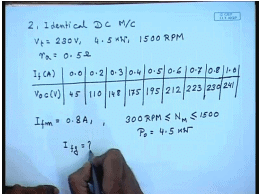 2. Identical DC M/C
Vt = 230V, 4.5 kW, 1500 RPM
ra = 0.5 Ω
If (A) 0.0 0.2 0.3 0.4 0.5 0.6 0.7 0.8 1.0
VOC (V) 45 110 148 175 195 212 223 230 241
Ifm = 0.8A, 300 RPM ≤ Nm ≤ 1500
Po = 4.5 kW
Ifg = ?